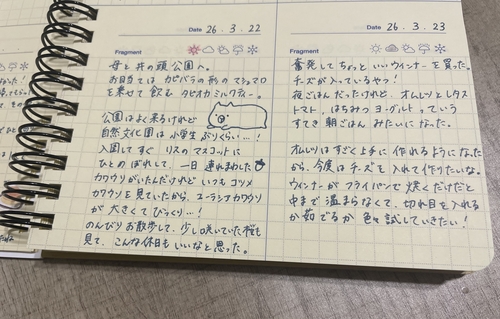 Date 26.3.22
Fragment
母と井の頭公園へ。
お目当ては カピバラの形のマシュマロ
を乗せて飲む タピオカミルクティー。
公園はよく来るけれど
自然文化園は小学生ぶりくらい…!
入園してすぐ リスのマスコットに
ひとめぼれして、一日連れまわした
カワウソがいたんだけれど いつもコツメ
カワウソを見ていたから、ユーラシアカワウソ
が大きくてびっくり…!
のんびりお散歩して、少し咲いていた桜も
見て、こんな休日もいいなと思った。
Date 26.3.23
Fragment
奮発してちょっといいウインナーを買った。
チーズが入っているやつ!
夜ごはんだったけれど、オムレツとレタス
トマト、はちみつヨーグルトっていう
すてき朝ごはんみたいになった。
オムレツはすごく上手に作れるようになった
から、今度はチーズを入れて作りたいな。
ウインナーがフライパンで焼くだけだと
中まで温まらなくて、切れ目を入れる
か茹でるか色々試していきたい!